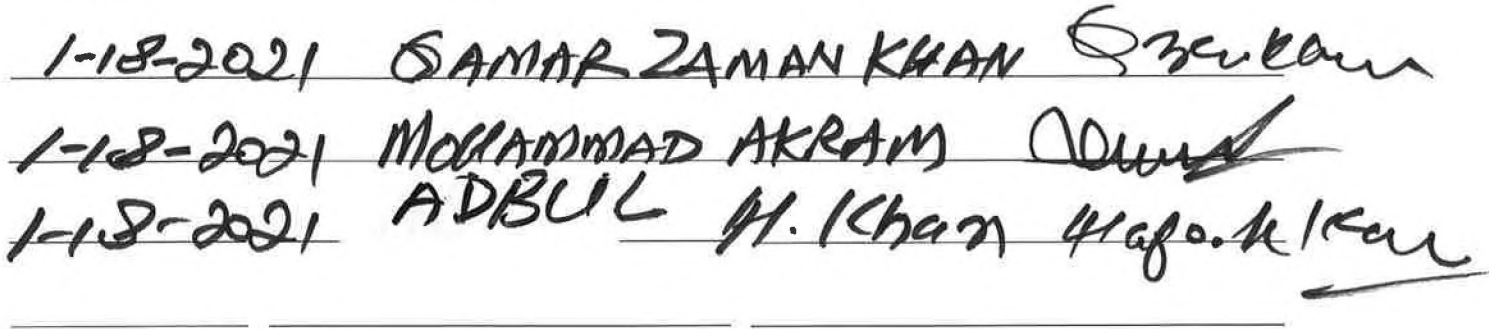 1-18-2021 QAMAR ZAMAN KHAN
1-18-2021 MOHAMMAD AKRAM
1-18-2021 ADBUL H. Khan